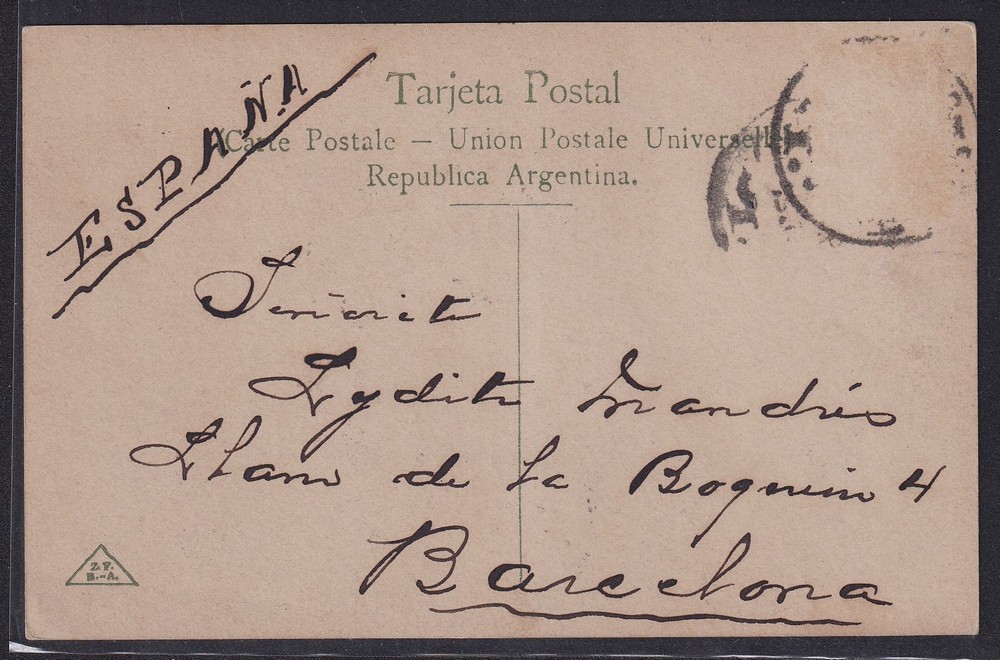 ESPAÑA
Tarjeta Postal
Carte Postale — Union Postale Universelle
Republica Argentina.
Señorita
Lydita
de la Boqueria 4
Barcelona
Z.F.
B.-A.